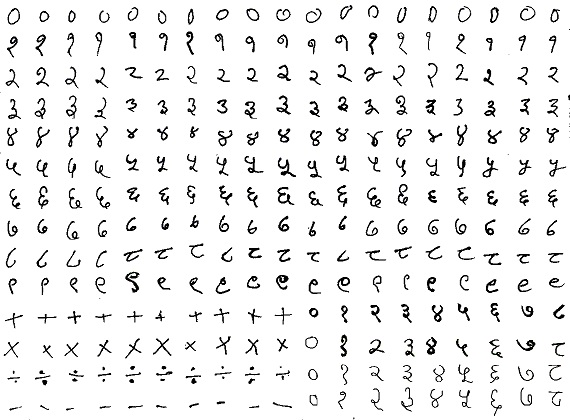 ० ० ० ० ० ० ० ० ० ० ० ० ० ० ० ० ० ० ०
१ १ १ १ १ १ १ १ १ १ १ १ १ १ १ १ १ १ १
२ २ २ २ २ २ २ २ २ २ २ २ २ २ २ २ २ २ २
३ ३ ३ ३ ३ ३ ३ ३ ३ ३ ३ ३ ३ ३ ३ ३ ३ ३ ३
४ ४ ४ ४ ४ ४ ४ ४ ४ ४ ४ ४ ४ ४ ४ ४ ४ ४ ४
५ ५ ५ ५ ५ ५ ५ ५ ५ ५ ५ ५ ५ ५ ५ ५ ५ ५ ५
६ ६ ६ ६ ६ ६ ६ ६ ६ ६ ६ ६ ६ ६ ६ ६ ६ ६ ६
७ ७ ७ ७ ७ ७ ७ ७ ७ ७ ७ ७ ७ ७ ७ ७ ७ ७ ७
८ ८ ८ ८ ८ ८ ८ ८ ८ ८ ८ ८ ८ ८ ८ ८ ८ ८ ८
९ ९ ९ ९ ९ ९ ९ ९ ९ ९ ९ ९ ९ ९ ९ ९ ९ ९ ९
+ + + + + + + + + + ० १ २ ३ ४ ५ ६ ७ ८
× × × × × × × × × × ० १ २ ३ ४ ५ ६ ७ ८
÷ ÷ ÷ ÷ ÷ ÷ ÷ ÷ ÷ ÷ ० १ २ ३ ४ ५ ६ ७ ८
− − − − − − − − − − ० १ २ ३ ४ ५ ६ ७ ८